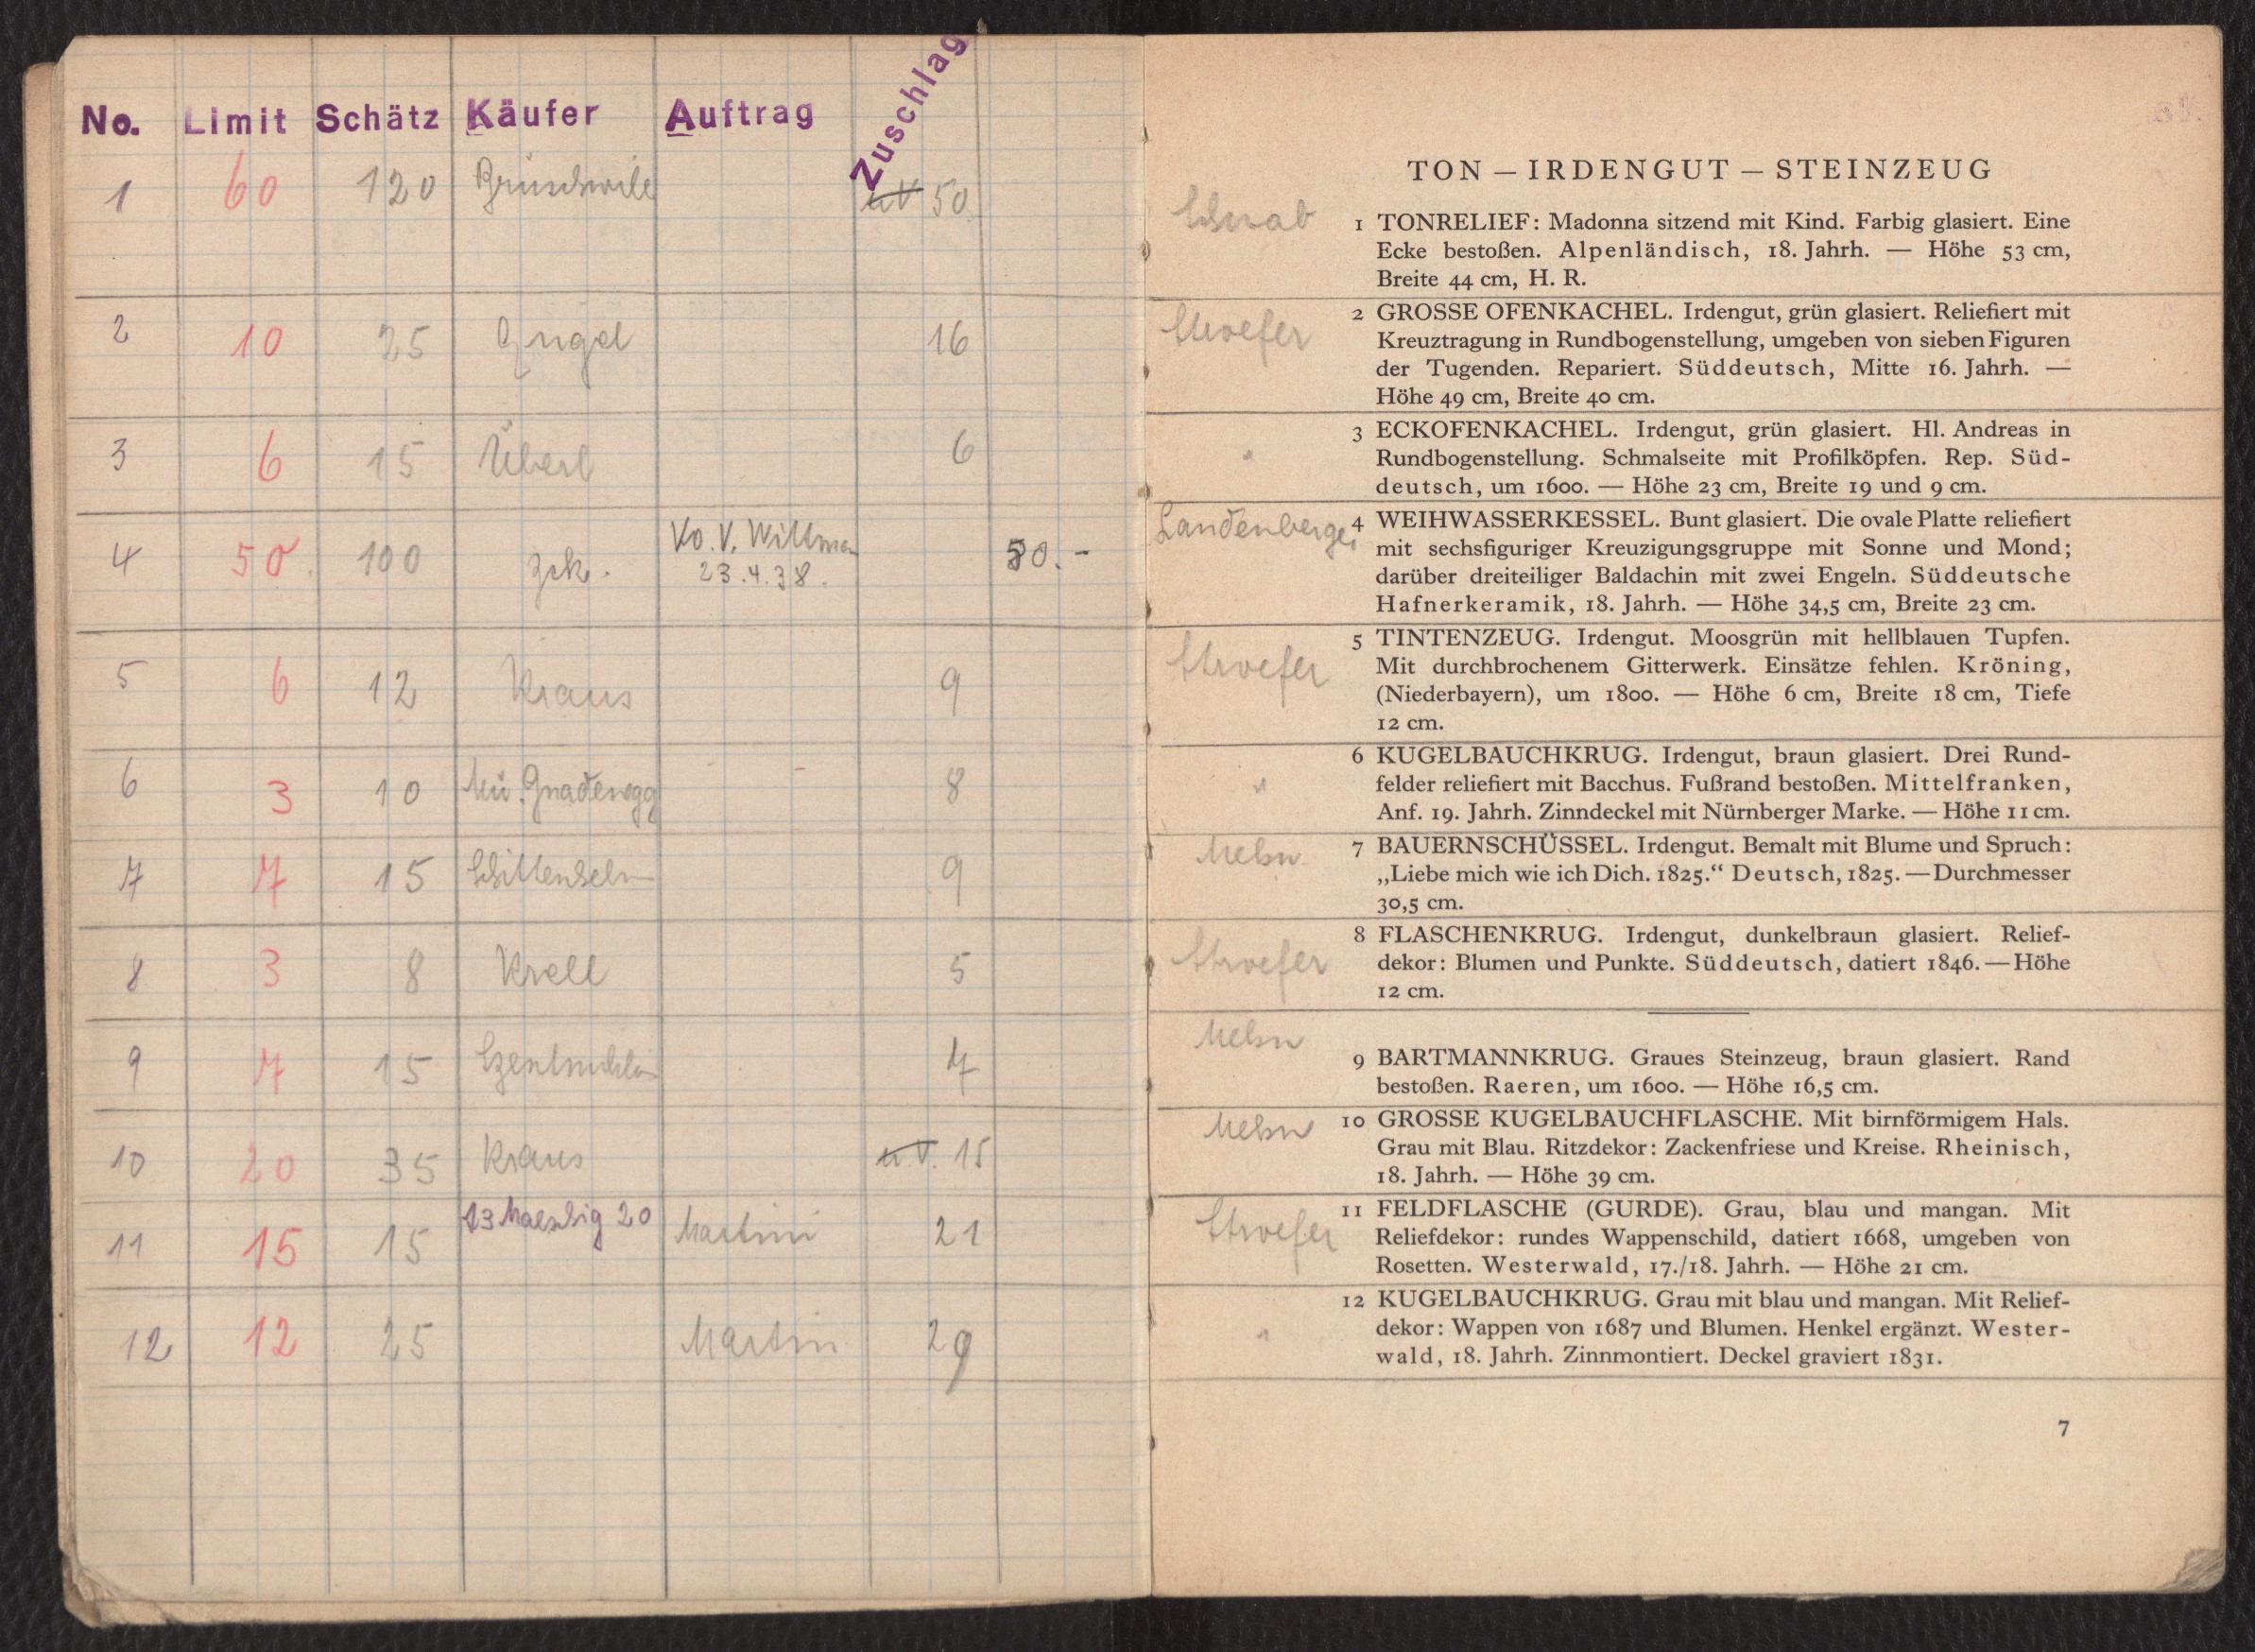 No. Limit Schätz Käufer Auftrag Zuschlag
1 60 120 50
2 10 25 16
3 6 15 Überl 6
4 50 100 zrk. Vo. V. 50.-
23.4.38.
5 6 12 Kraus 9
6 3 10 8
7 7 15 9
8 3 8 Krell 5
9 7 15 7
10 20 35 Kraus 15
11 15 15 20 Martini 21
12 12 25 Martin 29
TON — IRDENGUT — STEINZEUG
Schwab
1 TONRELIEF: Madonna sitzend mit Kind. Farbig glasiert. Eine
Ecke bestoßen. Alpenländisch, 18. Jahrh. — Höhe 53 cm,
Breite 44 cm, H. R.
Stroefer
2 GROSSE OFENKACHEL. Irdengut, grün glasiert. Reliefiert mit
Kreuztragung in Rundbogenstellung, umgeben von sieben Figuren
der Tugenden. Repariert. Süddeutsch, Mitte 16. Jahrh. —
Höhe 49 cm, Breite 40 cm.
"
3 ECKOFENKACHEL. Irdengut, grün glasiert. Hl. Andreas in
Rundbogenstellung. Schmalseite mit Profilköpfen. Rep. Süd-
deutsch, um 1600. — Höhe 23 cm, Breite 19 und 9 cm.
Landenberger
4 WEIHWASSERKESSEL. Bunt glasiert. Die ovale Platte reliefiert
mit sechsfiguriger Kreuzigungsgruppe mit Sonne und Mond;
darüber dreiteiliger Baldachin mit zwei Engeln. Süddeutsche
Hafnerkeramik, 18. Jahrh. — Höhe 34,5 cm, Breite 23 cm.
Stroefer
5 TINTENZEUG. Irdengut. Moosgrün mit hellblauen Tupfen.
Mit durchbrochenem Gitterwerk. Einsätze fehlen. Kröning,
(Niederbayern), um 1800. — Höhe 6 cm, Breite 18 cm, Tiefe
12 cm.
"
6 KUGELBAUCHKRUG. Irdengut, braun glasiert. Drei Rund-
felder reliefiert mit Bacchus. Fußrand bestoßen. Mittelfranken,
Anf. 19. Jahrh. Zinndeckel mit Nürnberger Marke. — Höhe 11 cm.
7 BAUERNSCHÜSSEL. Irdengut. Bemalt mit Blume und Spruch:
„Liebe mich wie ich Dich. 1825.“ Deutsch, 1825. — Durchmesser
30,5 cm.
Stroefer
8 FLASCHENKRUG. Irdengut, dunkelbraun glasiert. Relief-
dekor: Blumen und Punkte. Süddeutsch, datiert 1846. — Höhe
12 cm.
9 BARTMANNKRUG. Graues Steinzeug, braun glasiert. Rand
bestoßen. Raeren, um 1600. — Höhe 16,5 cm.
10 GROSSE KUGELBAUCHFLASCHE. Mit birnförmigem Hals.
Grau mit Blau. Ritzdekor: Zackenfriese und Kreise. Rheinisch,
18. Jahrh. — Höhe 39 cm.
Stroefer
11 FELDFLASCHE (GURDE). Grau, blau und mangan. Mit
Reliefdekor: rundes Wappenschild, datiert 1668, umgeben von
Rosetten. Westerwald, 17./18. Jahrh. — Höhe 21 cm.
"
12 KUGELBAUCHKRUG. Grau mit blau und mangan. Mit Relief-
dekor: Wappen von 1687 und Blumen. Henkel ergänzt. Wester-
wald, 18. Jahrh. Zinnmontiert. Deckel graviert 1831.
7